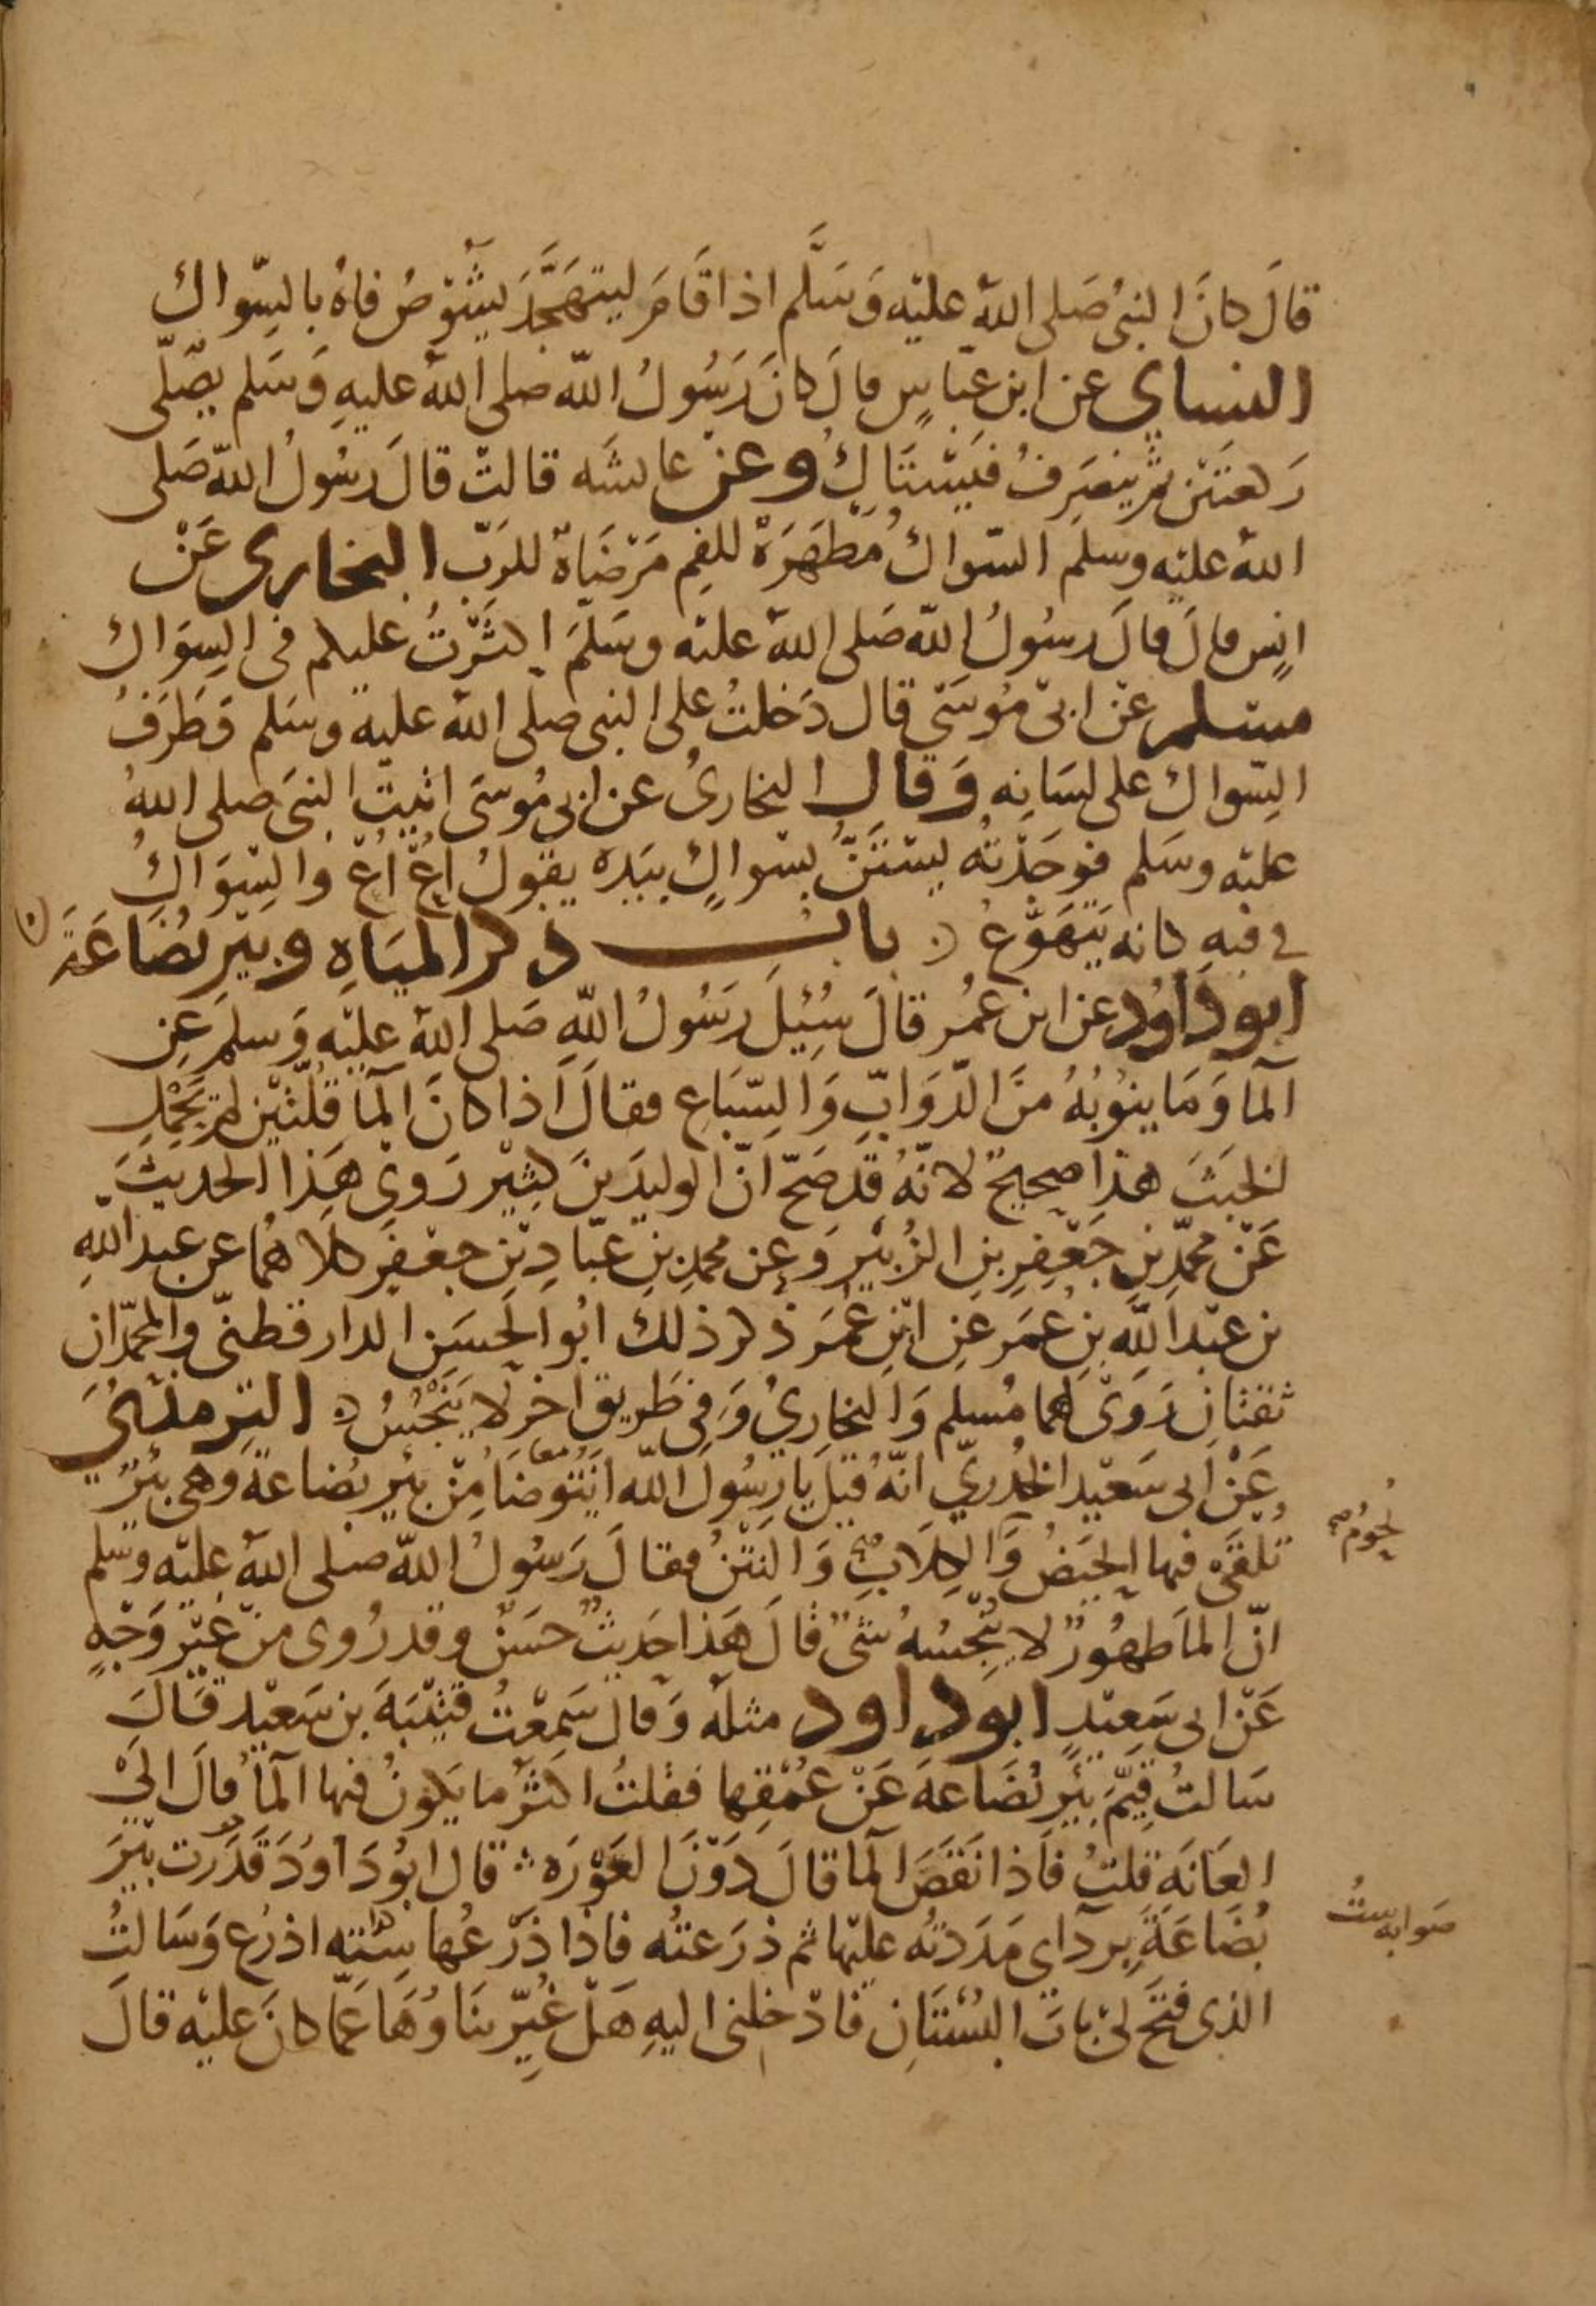 قالَ كانَ النبىُ صَلى اللهُ عليْه وَسَلَّم اذا قَامَ ليتهَجَّدَ يشُوْصُ فاهُ بالسِّواك
النساي عن ابن عبّاسٍ قالَ كانَ رَسُولُ الله صلى اللهُ عليهِ وَسَلم يصَلّى
رَكعتَيْن ثم ينصَرِفُ فيَسْتَاكُ وعنْ عايشَه قالتْ قالَ رسُولُ الله صَلى
اللهُ عليْه وسلم السّواكُ مَطْهَرَةٌ للفِم مَرْضَاةٌ للرَبّ البخارى عَنْ
انسٍ قالَ قالَ رسُولُ الله صَلى اللهُ عليْه وسَلمَ اكثَرْتُ عليكم فى السِوَاك
مسْلم عنْ ابىْ مُوسَى قال دَخلتُ على النبى صلى اللهُ عليْه وسَلم وَطَرَفُ
السِّواك على لسَانِه وَقال البخارىُ عن ابى مُوسَى اتيتُ النبىَ صلى اللهُ
عليْه وسَلم فوَجَدْتُه يسْتَنُّ بسْواكٍ بيَدِه يقُولُ اُعْ اُعْ والسِّوَاكُ
فى فيهِ كانه يَتَهَوَّعُ ٥ بابُ ذكر الميَاهِ وبيرِ بُضَاعَةَ
ابو دَاوُد عن ابن عُمَر قالَ سُئِلَ رَسُولُ اللهِ صَلى اللهُ عليْهِ وَسلمَ عَنِ
المآ وَمَا ينُوبُهُ منَ الدّوَابّ وَالسِّبَاع فقالَ اذا كانَ المآ قُلّتيْن لم يَحْمِلِ
الخبَثَ هذا صحيحٌ لانّهُ قدْ صَحّ انّ الوليدَ بنَ كثِيْر رَوى هَذا الحديثَ
عَنْ محمّدِ بنِ جَعْفرِ بنِ الزُبيْرِ وَعن محمدِ بنِ عبّادِ بْن جعفرٍ كلَاهُمَا عن عبدِ اللهِ
بن عبْد اللهِ بنِ عُمَر عنِ ابْنِ عُمَرَ ذكر ذلك ابُو الحسَن الدارقطنىّ والمحمّدَانِ
ثقتَانِ رَوَى لهما مُسلِم وَالبخارىُ وَفى طَريقٍ اخرَ لا يَنْجُسُ ٥ الترمذىُ
عَنْ ابى سَعيْد الخُدرىّ انّهُ قيْلَ يَا رسُولَ اللهِ اَنَتَوَضّأُ مِنْ بئرِ بُضاعةَ وَهى بئرٌ
تُلْقَى فيها الحِيَضُ وَالكِلَابِ وَالنتْنُ فقالَ رَسُولُ الله صَلى اللهُ عليْه وسَلم
لحُومُ صح
انّ المآَ طهُورٌ لا يُنَجّسُهُ شئٌ قالَ هَذا حَديثٌ حسَنٌ وقد رُوى منْ غيْر وَجْهٍ
عَنْ ابى سَعِيْدٍ ابَو داود مثلَه وَقال سَمِعْتُ قتيْبَةَ بن سَعيْد قالَ
سَالتُ قيّمَ بئرِ بُضَاعةَ عَنْ عُمْقِها فقلتُ اكثرُ ما يكونُ فيها المآ قالَ الىْ
العَانَة قلتُ فاذا نَقَصَ المآ قالَ دَوْنَ العَوْرَه قال ابُو دَاوُدَ قدَرْت بئرَ
بُضَاعَةَ بردَآى مَدَدْتُه عليْها ثم ذرَعتُه فاذا ذَرْعُها سِتته اذرُع وَسَالتُ
صَوابه ستُ
الذى فتحَ لىْ بَابَ البُسْتَانِ فادْخلنى اليهِ هَلْ غُيّرَ بنَاوُهَا عمّا كانَ عليْه قالَ